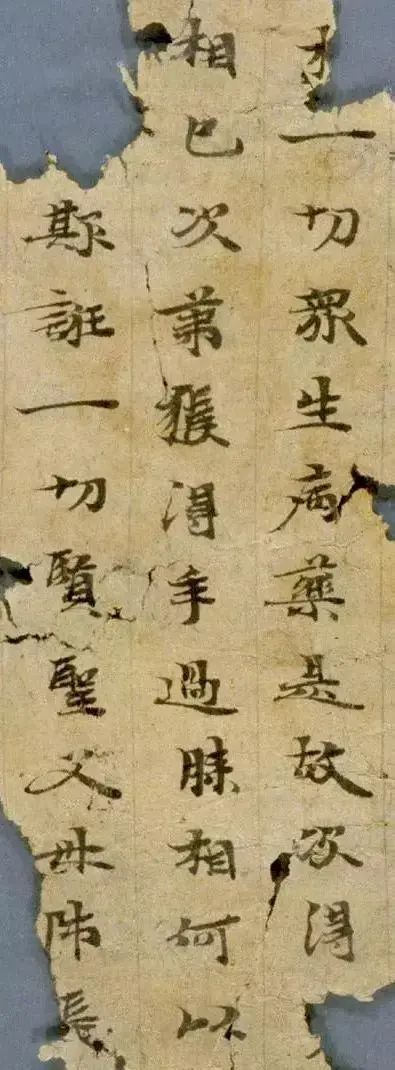 一切衆生病藥是故次得
相已次第獲得手過膝相何以
欺誑一切賢聖父母師長